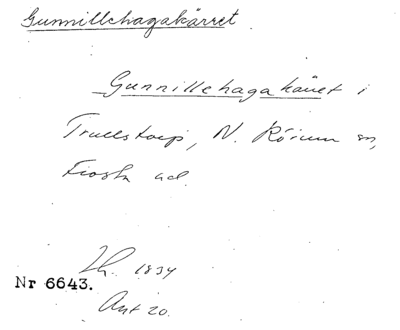 Gunnillehagakärret
Gunnillehagakärret i
Trulstorp, N. Rörum sn,
Frosta hd.
1834
Nr 6643.
Ant 20.